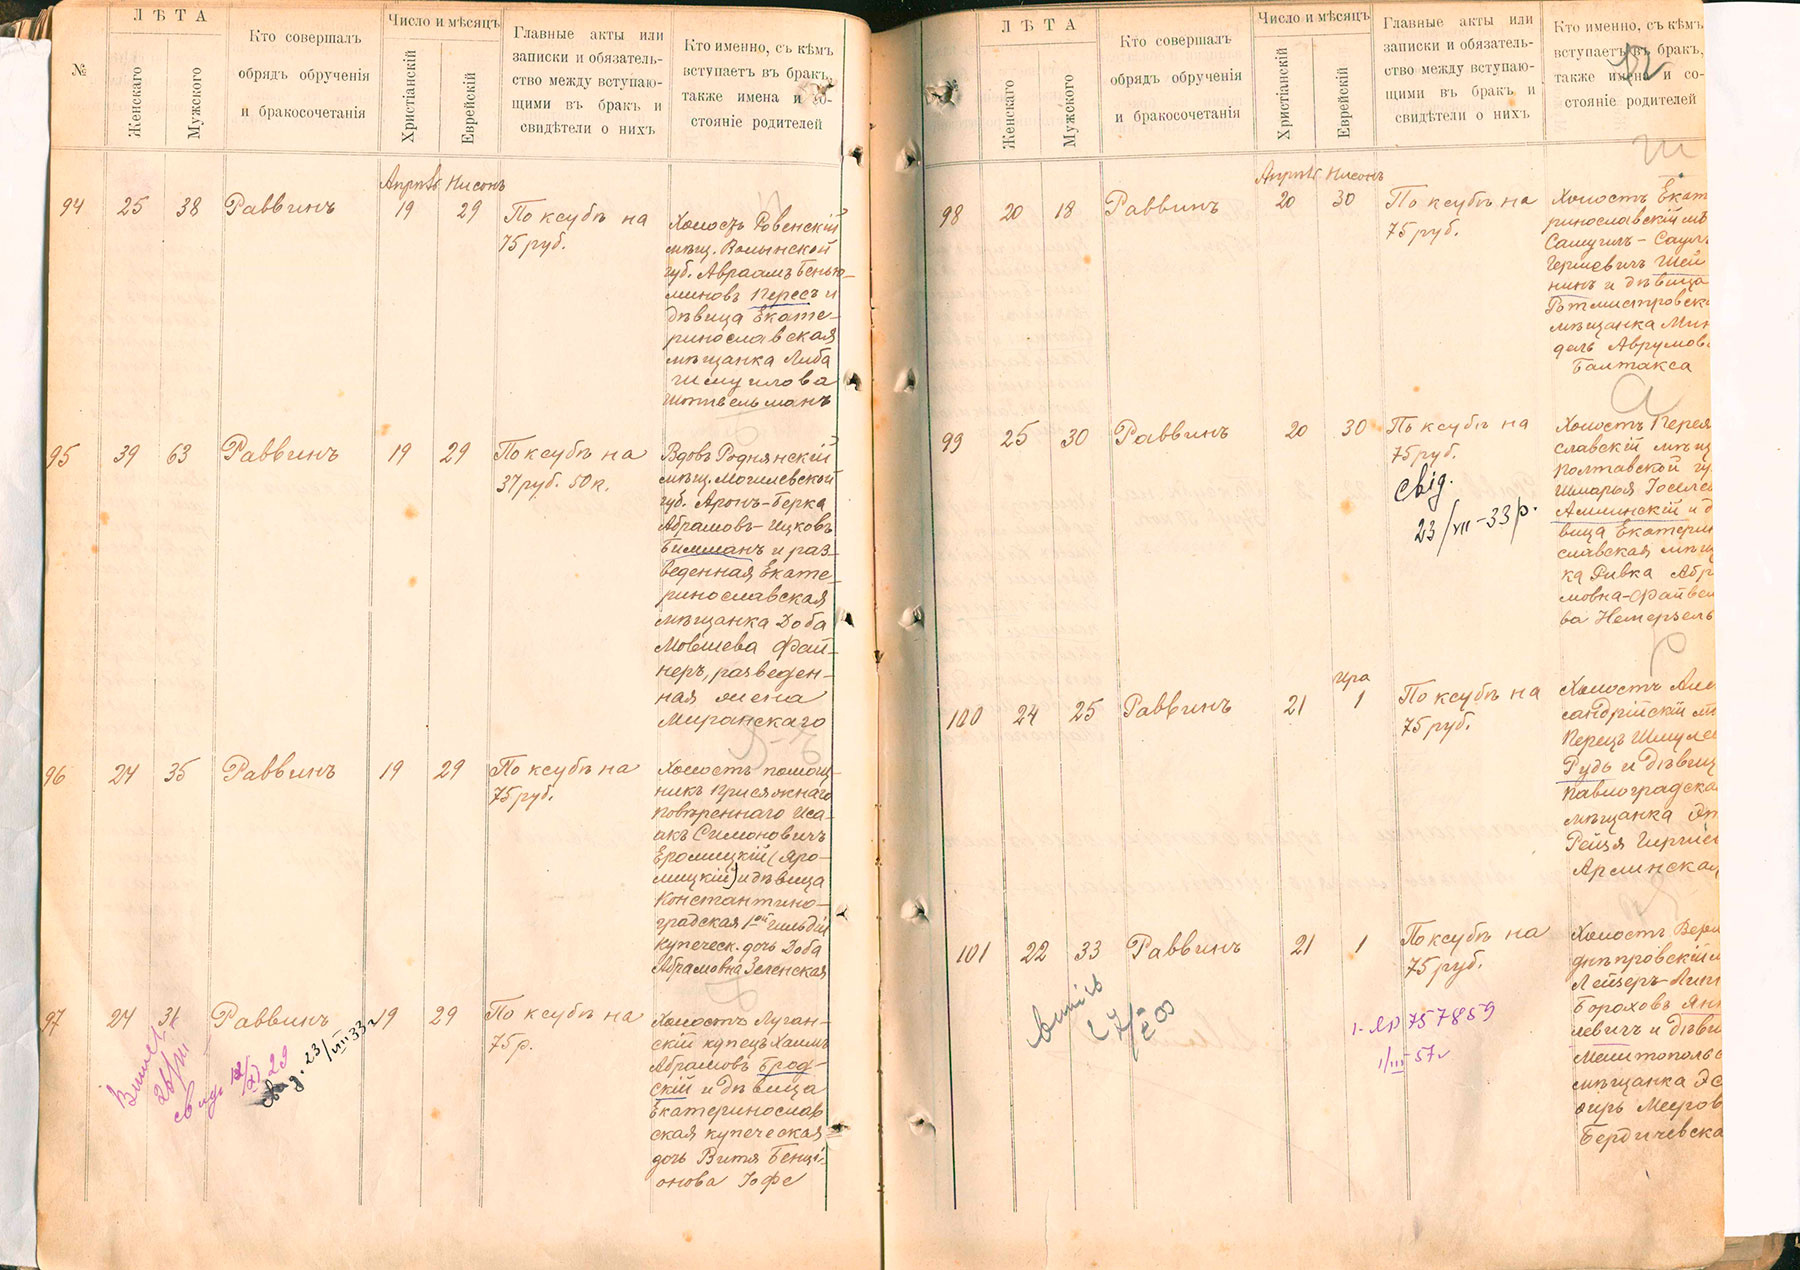 №
ЛѢТА
Женскаго
Мужского
Кто совершалъ
обрядъ обрученія
и бракосочетанія
Число и мѣсяцъ
Христіанскій
Еврейскій
Главные акты или
записки и обязатель-
ство между вступаю-
щими въ бракъ и
свидѣтели о нихъ
Кто именно, съ кѣмъ
вступаетъ въ бракъ,
также имена и со-
стояніе родителей
94 25 38 Раввинъ
Апрѣль Нисонъ
19 29
По ксубѣ на
75 руб.
Холостъ Ровенскій
мѣщ. Волынской
губ. Авраамъ Бенья-
миновъ Персъ и
дѣвица Екате-
ринославская
мѣщанка Либа
Шмуилова
95 39 63 Раввинъ 19 29
По ксубѣ на
37 руб. 50 к.
Вдовъ Роднянскій
мѣщ. Могилевской
губ. Аронъ-Берка
Абрамовъ-Ицковъ
Билманъ и раз-
веденная Екате-
ринославская
мѣщанка Доба
Мовшева Фай-
неръ, разведен-
ная жена
Миранскаго
96 24 35 Раввинъ 19 29
По ксубѣ на
75 руб.
Холостъ помощ-
никъ присяжнаго
повѣреннаго Иса-
акъ Симоновичъ
Еролицкій (Яро-
лицкій) и дѣвица
Константино-
градская 1ой гильдіи
купеческ. дочь Доба
Абрамовна Зеленская
97 24 31 Раввинъ 19 29
По ксубѣ на
75 р.
Холостъ Луган-
скій купецъ Хаимъ
Абрамовъ Брод-
скій и дѣвица
Екатеринослав
ская купеческая
дочь Витя Бенці-
онова Іофе
свид. 23/VIII 33 г
ЛѢТА
Женскаго
Мужского
Кто совершалъ
обрядъ обрученія
и бракосочетанія
Число и мѣсяцъ
Христіанскій
Еврейскій
Главные акты или
записки и обязатель-
ство между вступаю-
щими въ бракъ и
свидѣтели о нихъ
Кто именно, съ кѣмъ
вступаетъ въ бракъ,
также имена и со-
стояніе родителей
98 20 18 Раввинъ
Апрѣль Нисонъ
20 30
По ксубѣ на
75 руб.
Холостъ Екат
ринославскій мѣ
Самуилъ-Саул
Гершевичъ Шей
нинъ и дѣвица
Ротмистровск
мѣщанка Мин
дель Аврумов
Балтакса
99 25 30 Раввинъ 20 30
По ксубѣ на
75 руб.
свід.
23/VII-33 р.
Холостъ Перея
славскій мѣщ
Полтавской гу
Шмарья Іоселе
Аминскій и д
вица Екатерин
славская мѣщ
ка Ривка Абр
мовна-Файвел
ва Немерзель
100 24 25 Раввинъ 21
Ира
1
По ксубѣ на
75 руб.
Холостъ Алек
сандрійскій м
Перецъ Шмуле
Рудь и дѣвиц
Павлоградска
мѣщанка Эт
Рейзя Гирше
Арлинская
101 22 33 Раввинъ 21 1
По ксубѣ на
75 руб.
1/III 57 г
Холостъ Верх
днѣпровскій м
Лейзеръ-Лип
Бороховъ Ян
левичъ и дѣви
Мелитопольс
мѣщанка Эс
ѳирь Мееров
Бердичевска